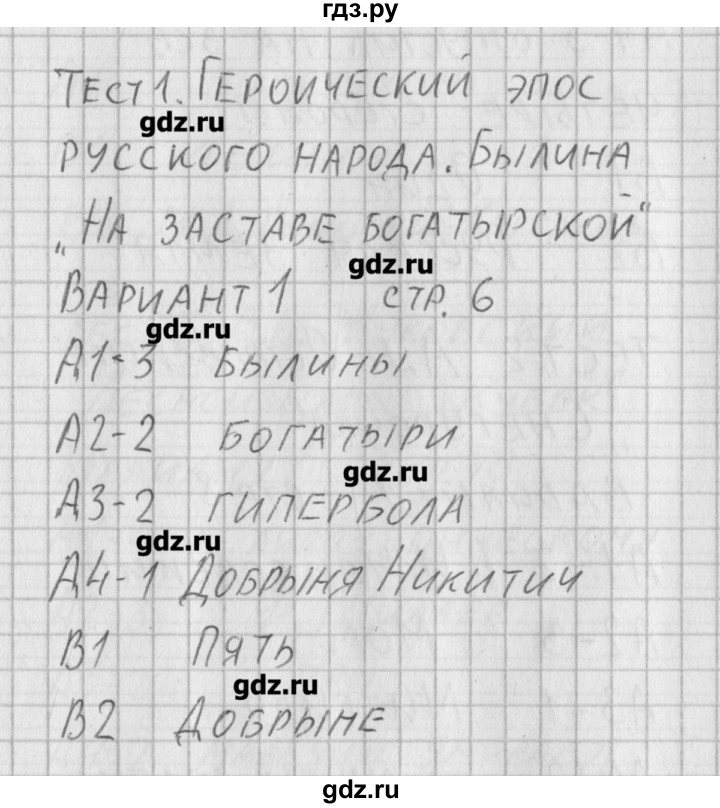 гдз.ру
Тест 1. Героический эпос
gdz.ru
русского народа. Былина
„На заставе богатырской“
gdz.ru
Вариант 1 стр. 6
gdz.ru
А1-3 Былины
А2-2 богатыри
gdz.ru
А3-2 гипербола
gdz.ru
А4-1 Добрыня Никитич
В1 Пять
gdz.ru
В2 Добрыне
gdz.ru